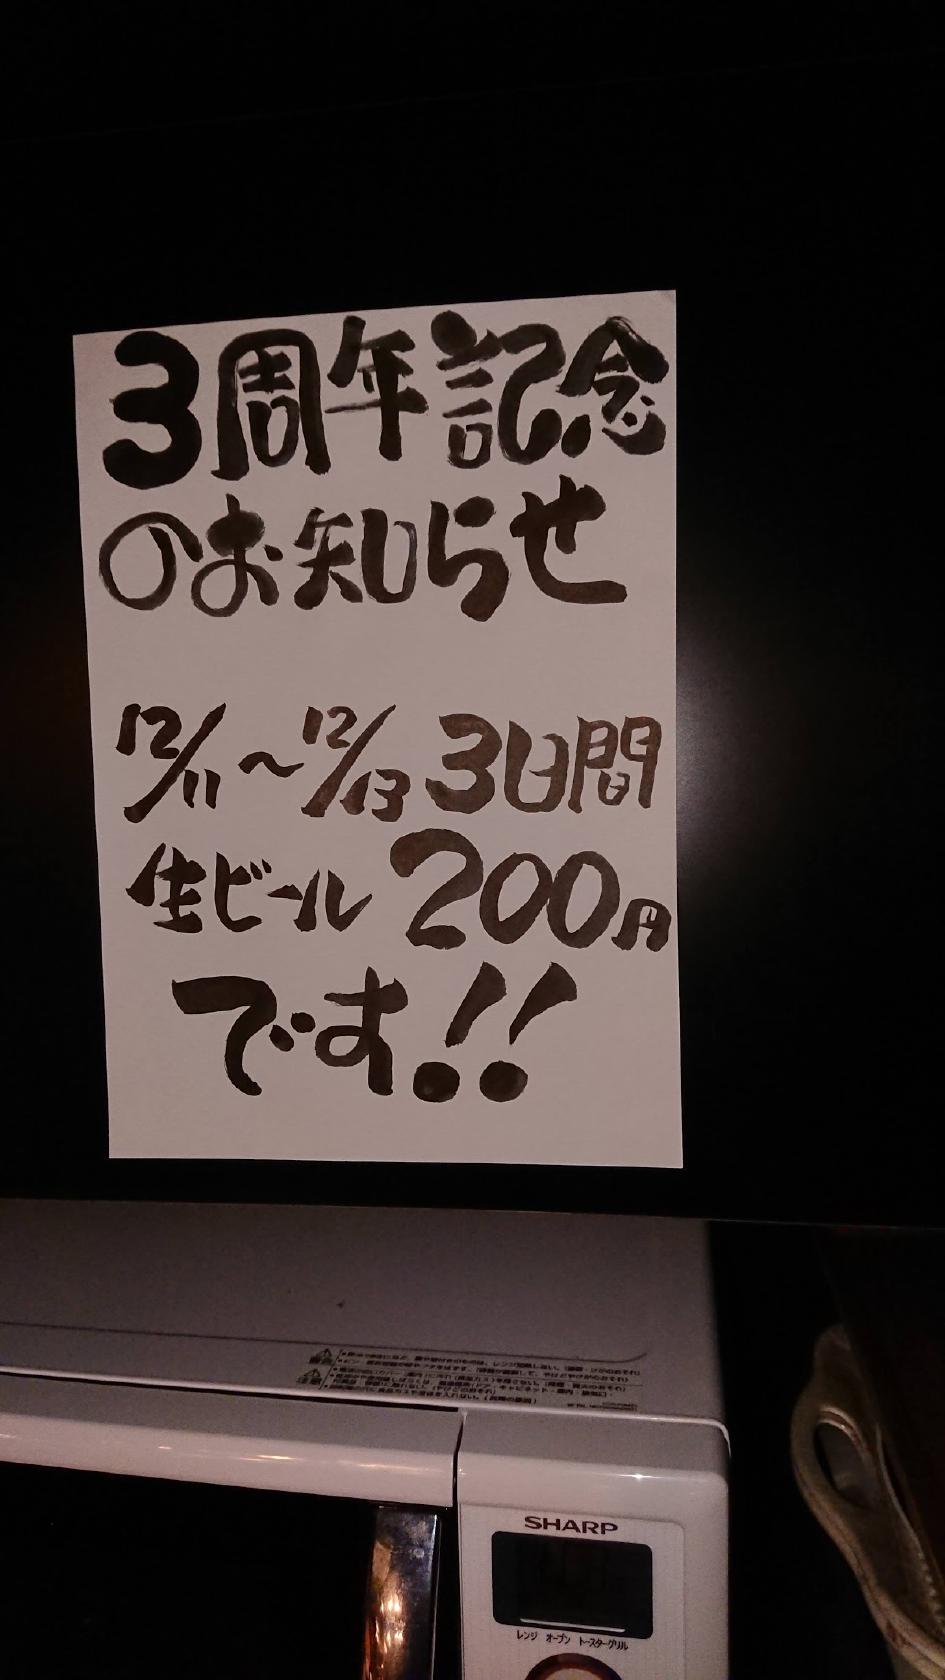 3周年記念
のお知らせ
12/11～12/13 3日間
生ビール 200円
です!!
SHARP
レンジ オーブン トースターグリル